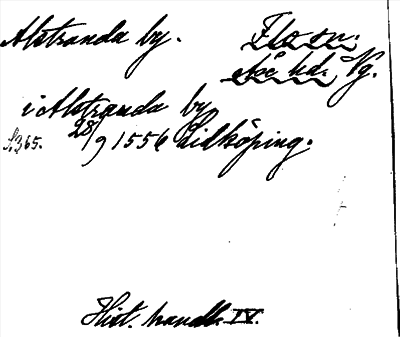 Alstranda by. Flo sn.
Åse hd. Vg.
i Alstranda by
S. 365. 28/9 1556 Lidköping.
Hist. handl. IV.